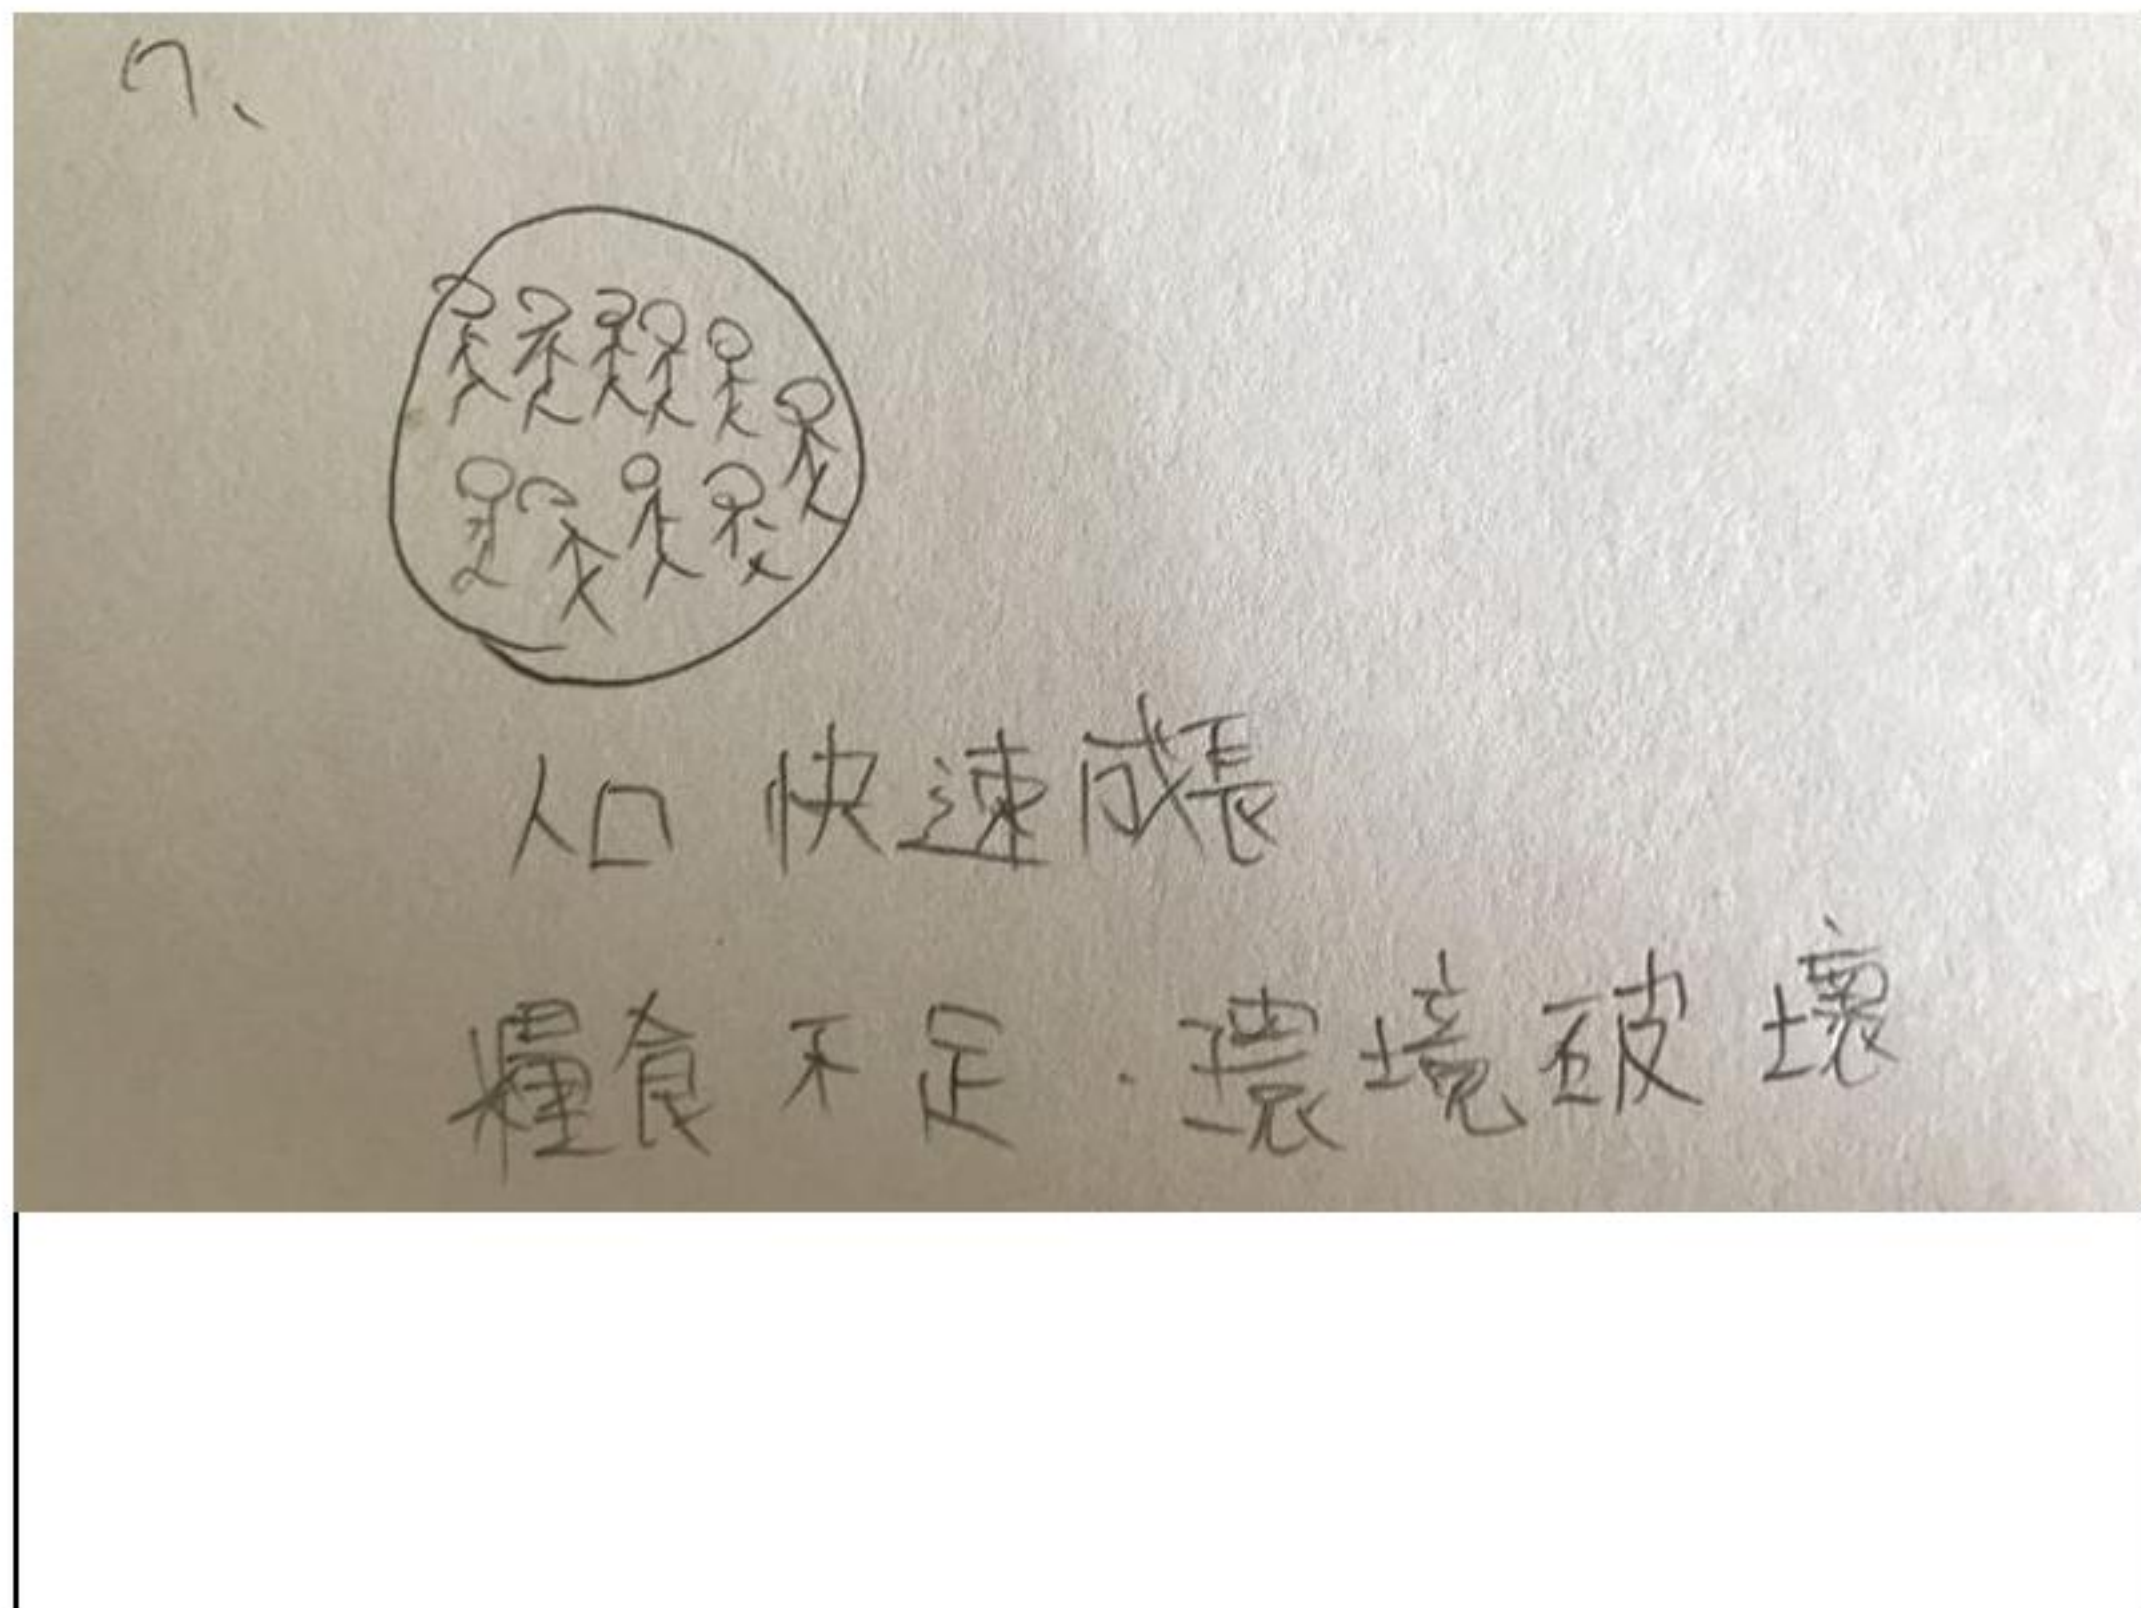 7、
人口快速成長
糧食不足.環境破壞